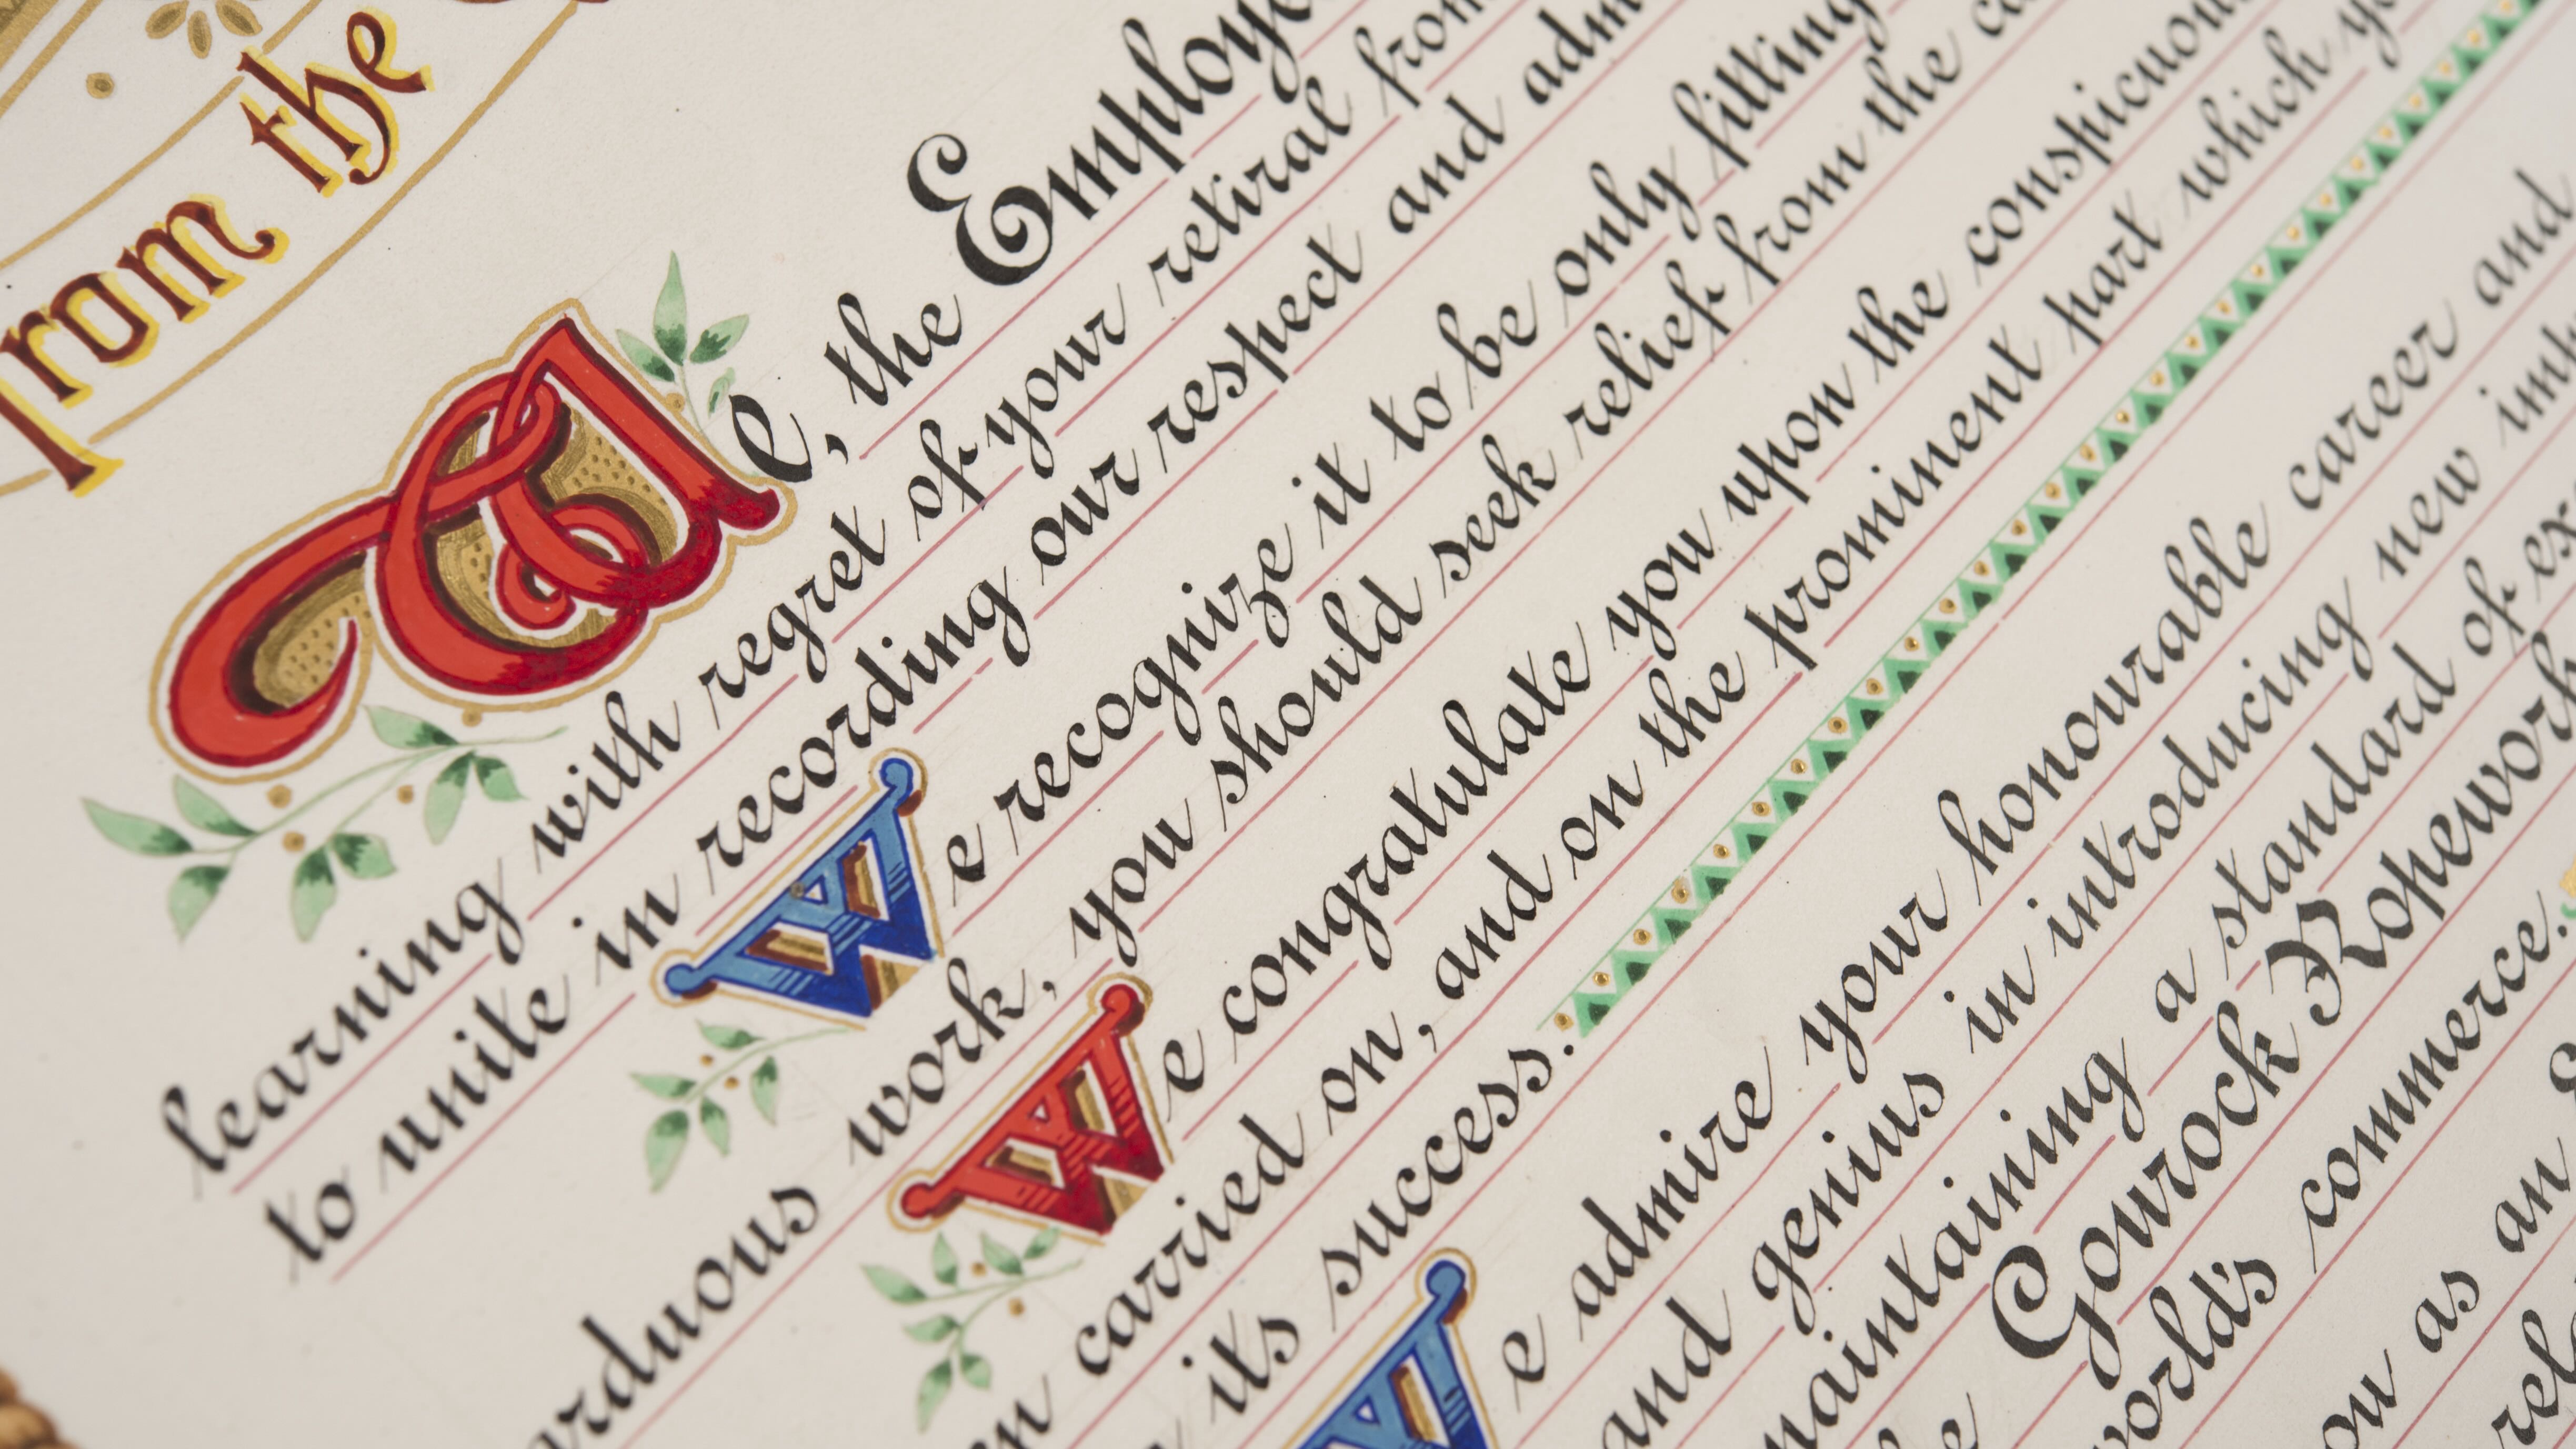 from the
We, the Employe
learning with regret of your retiral from
to unite in recording our respect and adm
We recognize it to be only fitting
arduous work, you should seek relief from the ca
We congratulate you upon the conspicuou
en carried on, and on the prominent part which y
its success.
We admire your honourable career and
and genius in introducing new imp
maintaining a standard of ex
Gourock Ropework
world's commerce.
ou as an
rel